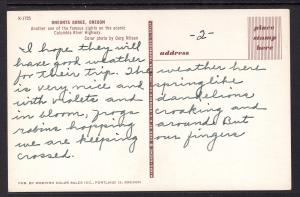 K-1725
ONEONTA GORGE, OREGON
Another one of the famous sights on the scenic
Columbia River Highway.
Color photo by Gorg Nilsen
place
stamp
here
-2-
address
I hope they will
have good weather
for their trip. The weather here
is very nice and springlike
with violets and dandelions
in bloom, frogs croaking and
robins hopping around. But
we are keeping our fingers
crossed.
PUB. BY WESTERN COLOR SALES INC., PORTLAND 13, OREGON